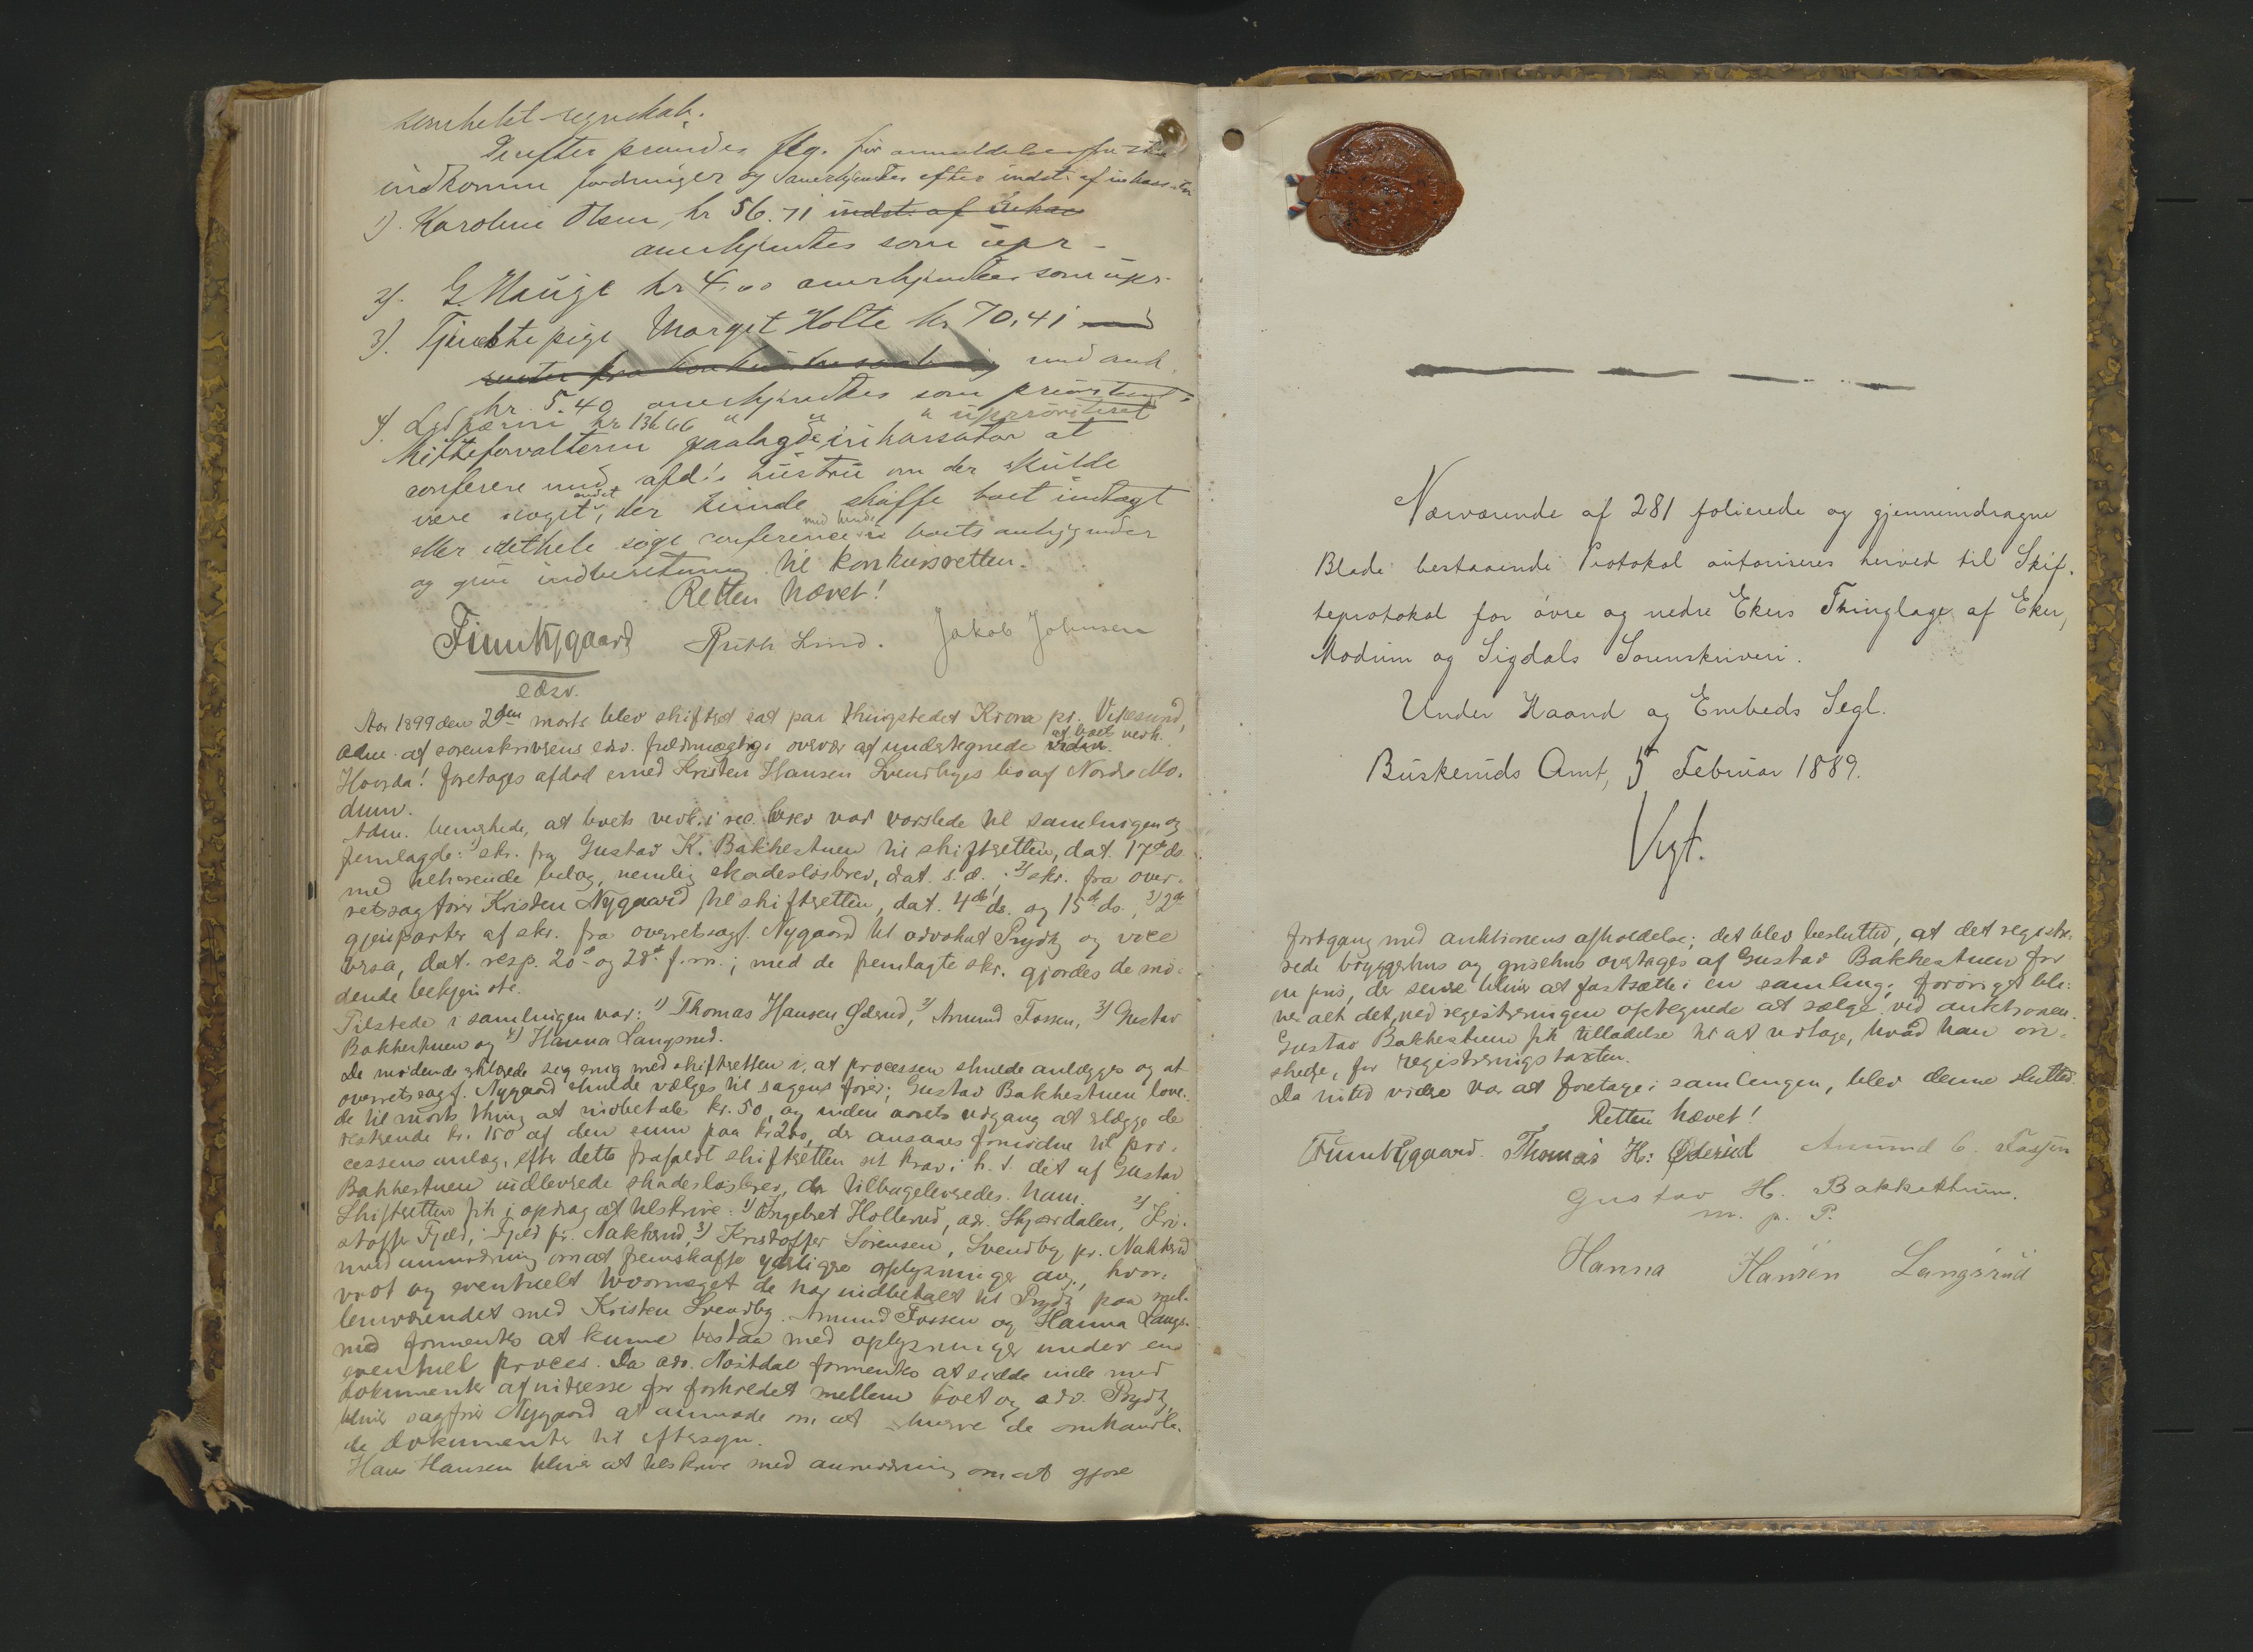 somhelst regnskab.
Derefter prøvedes flg. før anmeldelsesfristen
indkomne fordringer og anerkjendtes efter indst. af inkassator
1). Karoline Olsen, kr 56.71 indst. af inkas
anerkjendtes som upr-
2). G. Hauge kr 4.00 anerkjendtes som upr-
3). Tjenestepige Margit Holte kr 70.41 med
renter fra med and.
kr. 5.40 anerkjendtes som prioriteret
4). kr 136.66 " " " uprioriteret
Skifteforvalteren paalagde inkassator at
conferere med afd's hustru om der skulde
være noget andet, der kunde skaffe boet indtægt
eller idethele søge conference med hende i boets anliggender
og give indberetning til konkursretten.
Retten hævet!
Finn Nygaard Ruth Lind. Jakob Johnsen
edsv.
Aar 1899 den 2den marts blev skifteret sat paa thingstedet Krona pr. Vikesund,
adm. af sorenskriverens edsv. fuldmægtig i overvær af undertegnede af boet vedk.
Hvorda! foretoges afdød smed Kristen Hansen Svendbyes bo af Nordre Mo-
dum.
Adm. bemerkede, at boets vedk. i rec. brev var varslede til samlingen og
fremlagde: 1) skr. fra Gustav K. Bakkestuen til skifteretten, dat. 17de ds.
med tilhørende belæg, nemlig skadesløsbrev, dat. s.d.; 2) skr. fra over-
retssagfører Kristen Nygaard til skifteretten, dat. 4de ds. og 15de ds., 3) 2de
gjenparter af skr. fra overretssagf. Nygaard til advokat Prydz og vice
versa, dat. resp. 20de og 28de f.m.; med de fremlagte skr. gjordes de mø-
dende bekjendte.
Tilstede i samlingen var: 1) Thomas Hansen Øderud, 2) Amund Fossen, 3) Gustav
Bakkestuen og 4) Hanna Langsrud.
De mødende erklærede seg enig med skifteretten i, at processen skulde anlægges og at
overretssagf. Nygaard skulde vælges til sagens fører; Gustav Bakkestuen love-
de til marts thing at indbetale kr. 50, og inden aarets udgang at erlægge de
resterende kr. 150 af den sum paa kr 200, der ansaaes fornøden til pro-
cessens anlæg, efter dette frafaldt skifteretten sit krav i h. t. det af Gustav
Bakkestuen indleverede skadesløsbrev, der tilbageleveredes ham.
Skifteretten fik i opdrag at tilskrive: 1) Engebret Hollerud, adr. Skjærdalen, 2) Kri-
stoffer Fjeld, Fjeld pr. Nakkerud, 3) Kristoffer Sørensen, Svendby pr. Nakkerud
med anmodning om at fremskaffe yderligere oplysninger ang., hvor-
vidt og eventuelt hvormeget de har indbetalt til Prydz paa mel-
lemværendet med Kristen Svendby. Amund Fossen og Hanna Langs-
rud formentes at kunne bistaa med oplysninger under en
eventuel proces. Da adv. Nøstdal formentes at sidde inde med
dokumenter af interesse for forholdet mellem boet og adv. Prydz,
bliver sagfører Nygaard at anmode om at hverve de omhandle-
de dokumenter til eftersyn.
Hans Hansen bliver at tilskrive med anmodning om at gjøre
Nærværende af 281 folierede og gjennemdragne
Blade bestaaende Protokol autoriseres herved til Skif-
teprotokol for øvre og nedre Ekers Thinglage af Eker,
Modum og Sigdals Sorenskriveri.
Under Haand og Embeds Segl.
Buskeruds Amt, 5 Februar 1889.
Vogt.
fortgang med auktionens afholdelse; det blev besluttet, at det registre-
rede bryggerhus og grisehus overtages af Gustav Bakkestuen for
en pris, der senere bliver at fastsætte i en samling; forøvrigt bli-
ver alt det, ved registreringen optegnede at sælge ved auktionen.
Gustav Bakkestuen fik tilladelse til at udtage, hvad han øn-
skede, for registreringstaxten.
Da intet videre var at foretage i samlingen, blev denne sluttet.
Retten hævet!
Finn Nygaard. Thomas H. Øderud Amund C. Fossen
Gustav H. Bakkestuen.
m. p. P.
Hanna Hansen Langsrud